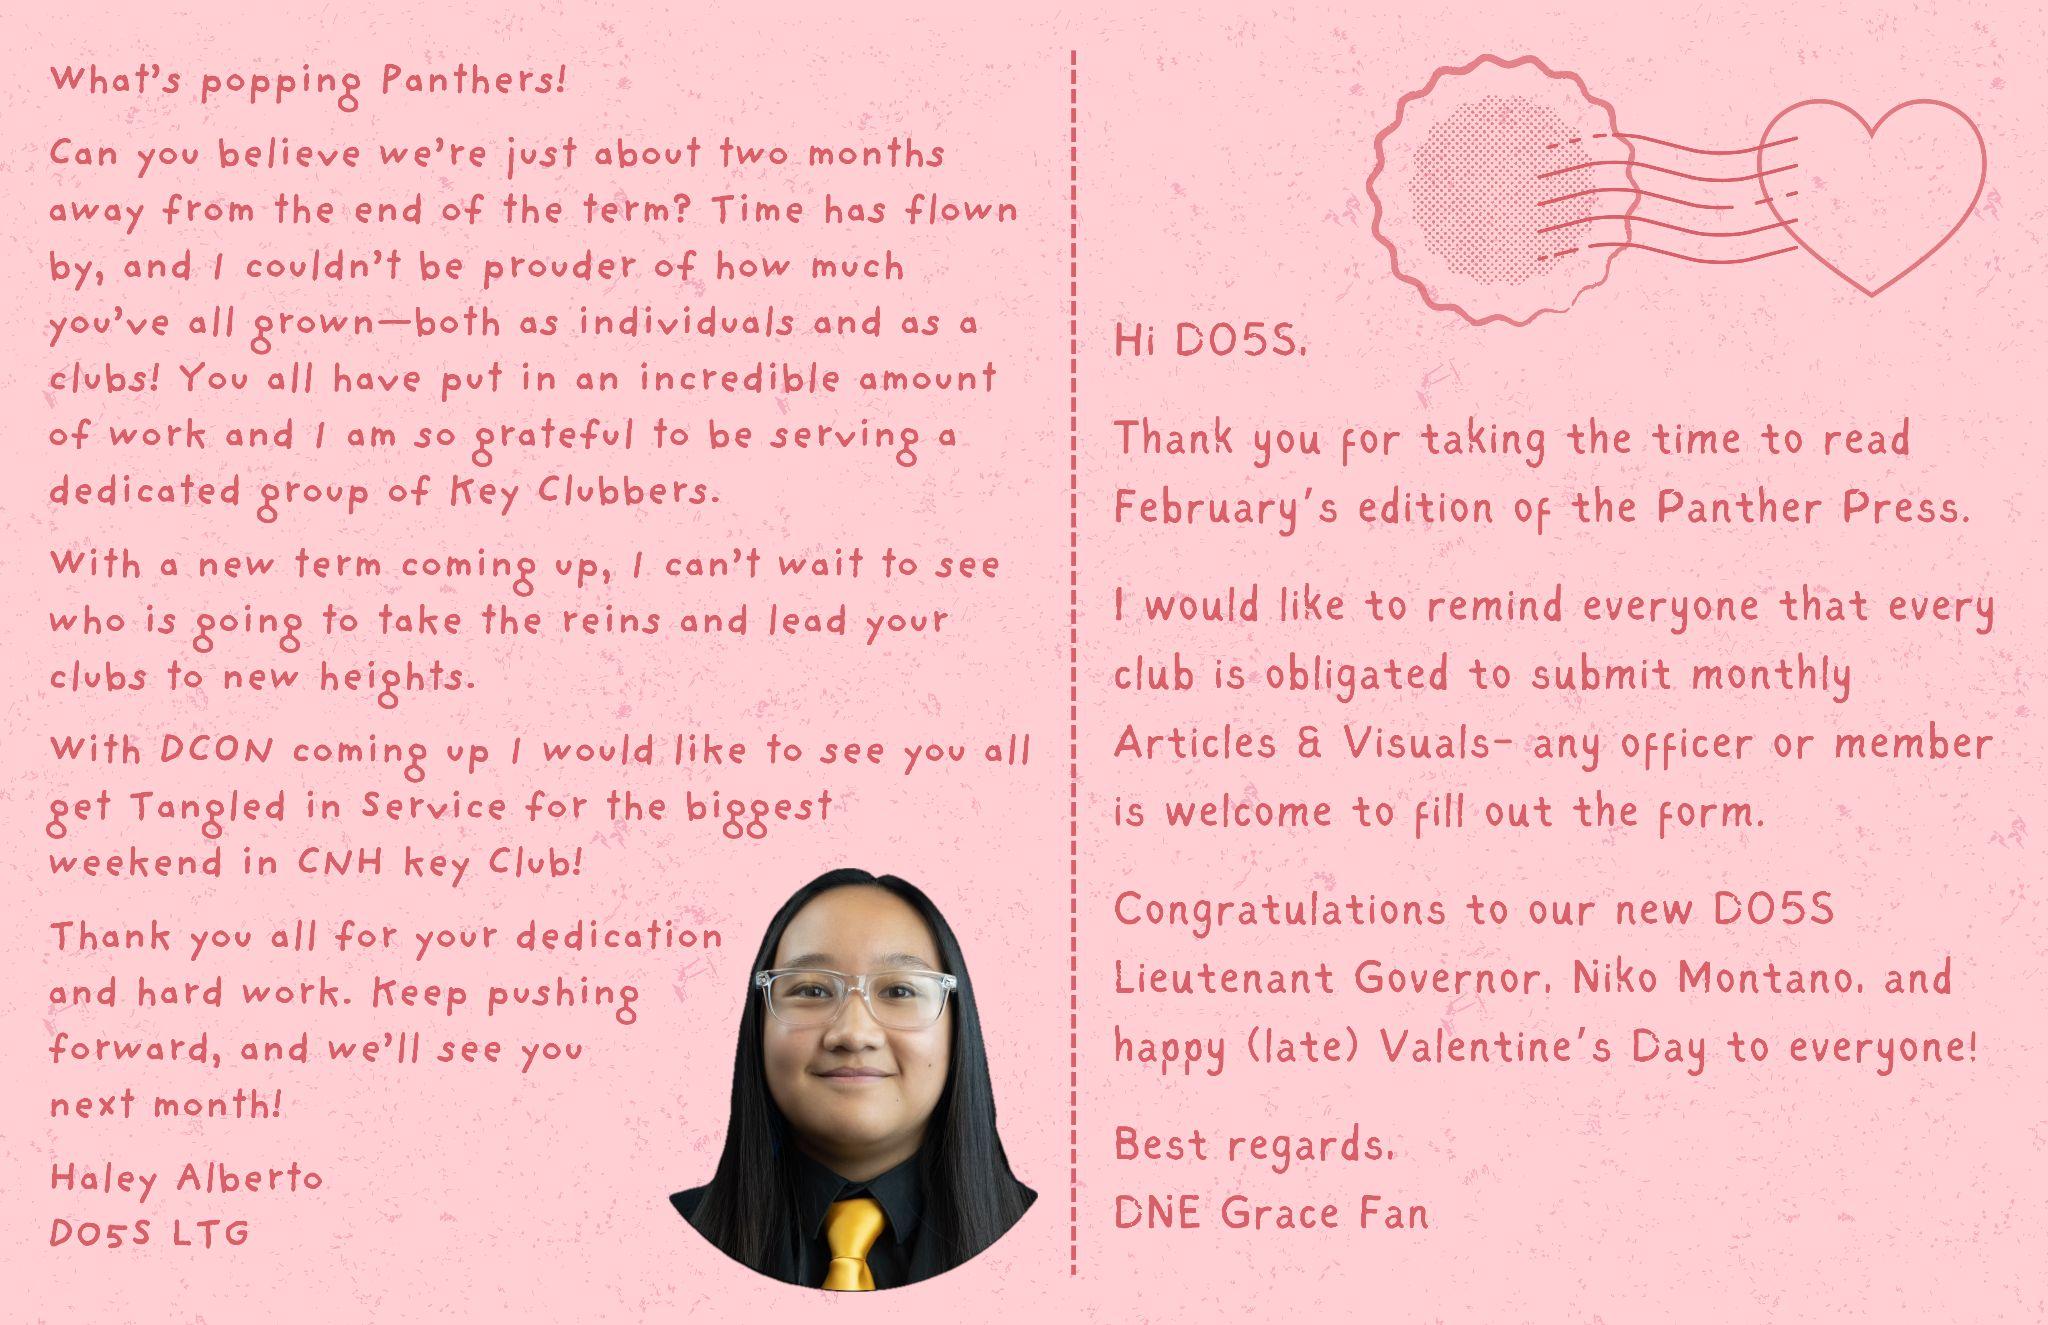 What's popping Panthers!
Can you believe we're just about two months
away from the end of the term? Time has flown
by, and I couldn't be prouder of how much
you've all grown—both as individuals and as a
clubs! You all have put in an incredible amount
of work and I am so grateful to be serving a
dedicated group of Key Clubbers.
With a new term coming up, I can't wait to see
who is going to take the reins and lead your
clubs to new heights.
With DCON coming up I would like to see you all
get Tangled in Service for the biggest
weekend in CNH key Club!
Thank you all for your dedication
and hard work. Keep pushing
forward, and we'll see you
next month!
Haley Alberto
D05S LTG
Hi D05S,
Thank you for taking the time to read
February's edition of the Panther Press.
I would like to remind everyone that every
club is obligated to submit monthly
Articles & Visuals- any officer or member
is welcome to fill out the form.
Congratulations to our new D05S
Lieutenant Governor, Niko Montano, and
happy (late) Valentine's Day to everyone!
Best regards,
DNE Grace Fan